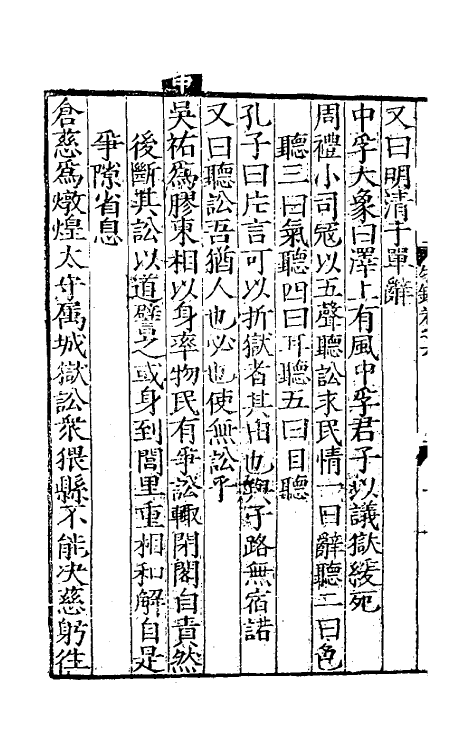 又曰明清于單辭
中孚大象曰澤上有風中孚君子以議獄緩死
周禮小司冦以五聲聽訟求民情一曰辭聽二曰色
聽三曰氣聽四曰耳聽五曰目聽
孔子曰片言可以折獄者其由也與子路無宿諾
又曰聽訟吾猶人也必也使無訟乎
吳祐爲膠東相以身率物民有爭訟輙閉閤自責然
後斷其訟以道譬之或身到閭里重相和解自是
爭隙省息
倉慈爲燉煌太守属城獄訟衆猥縣不能决慈躬徃